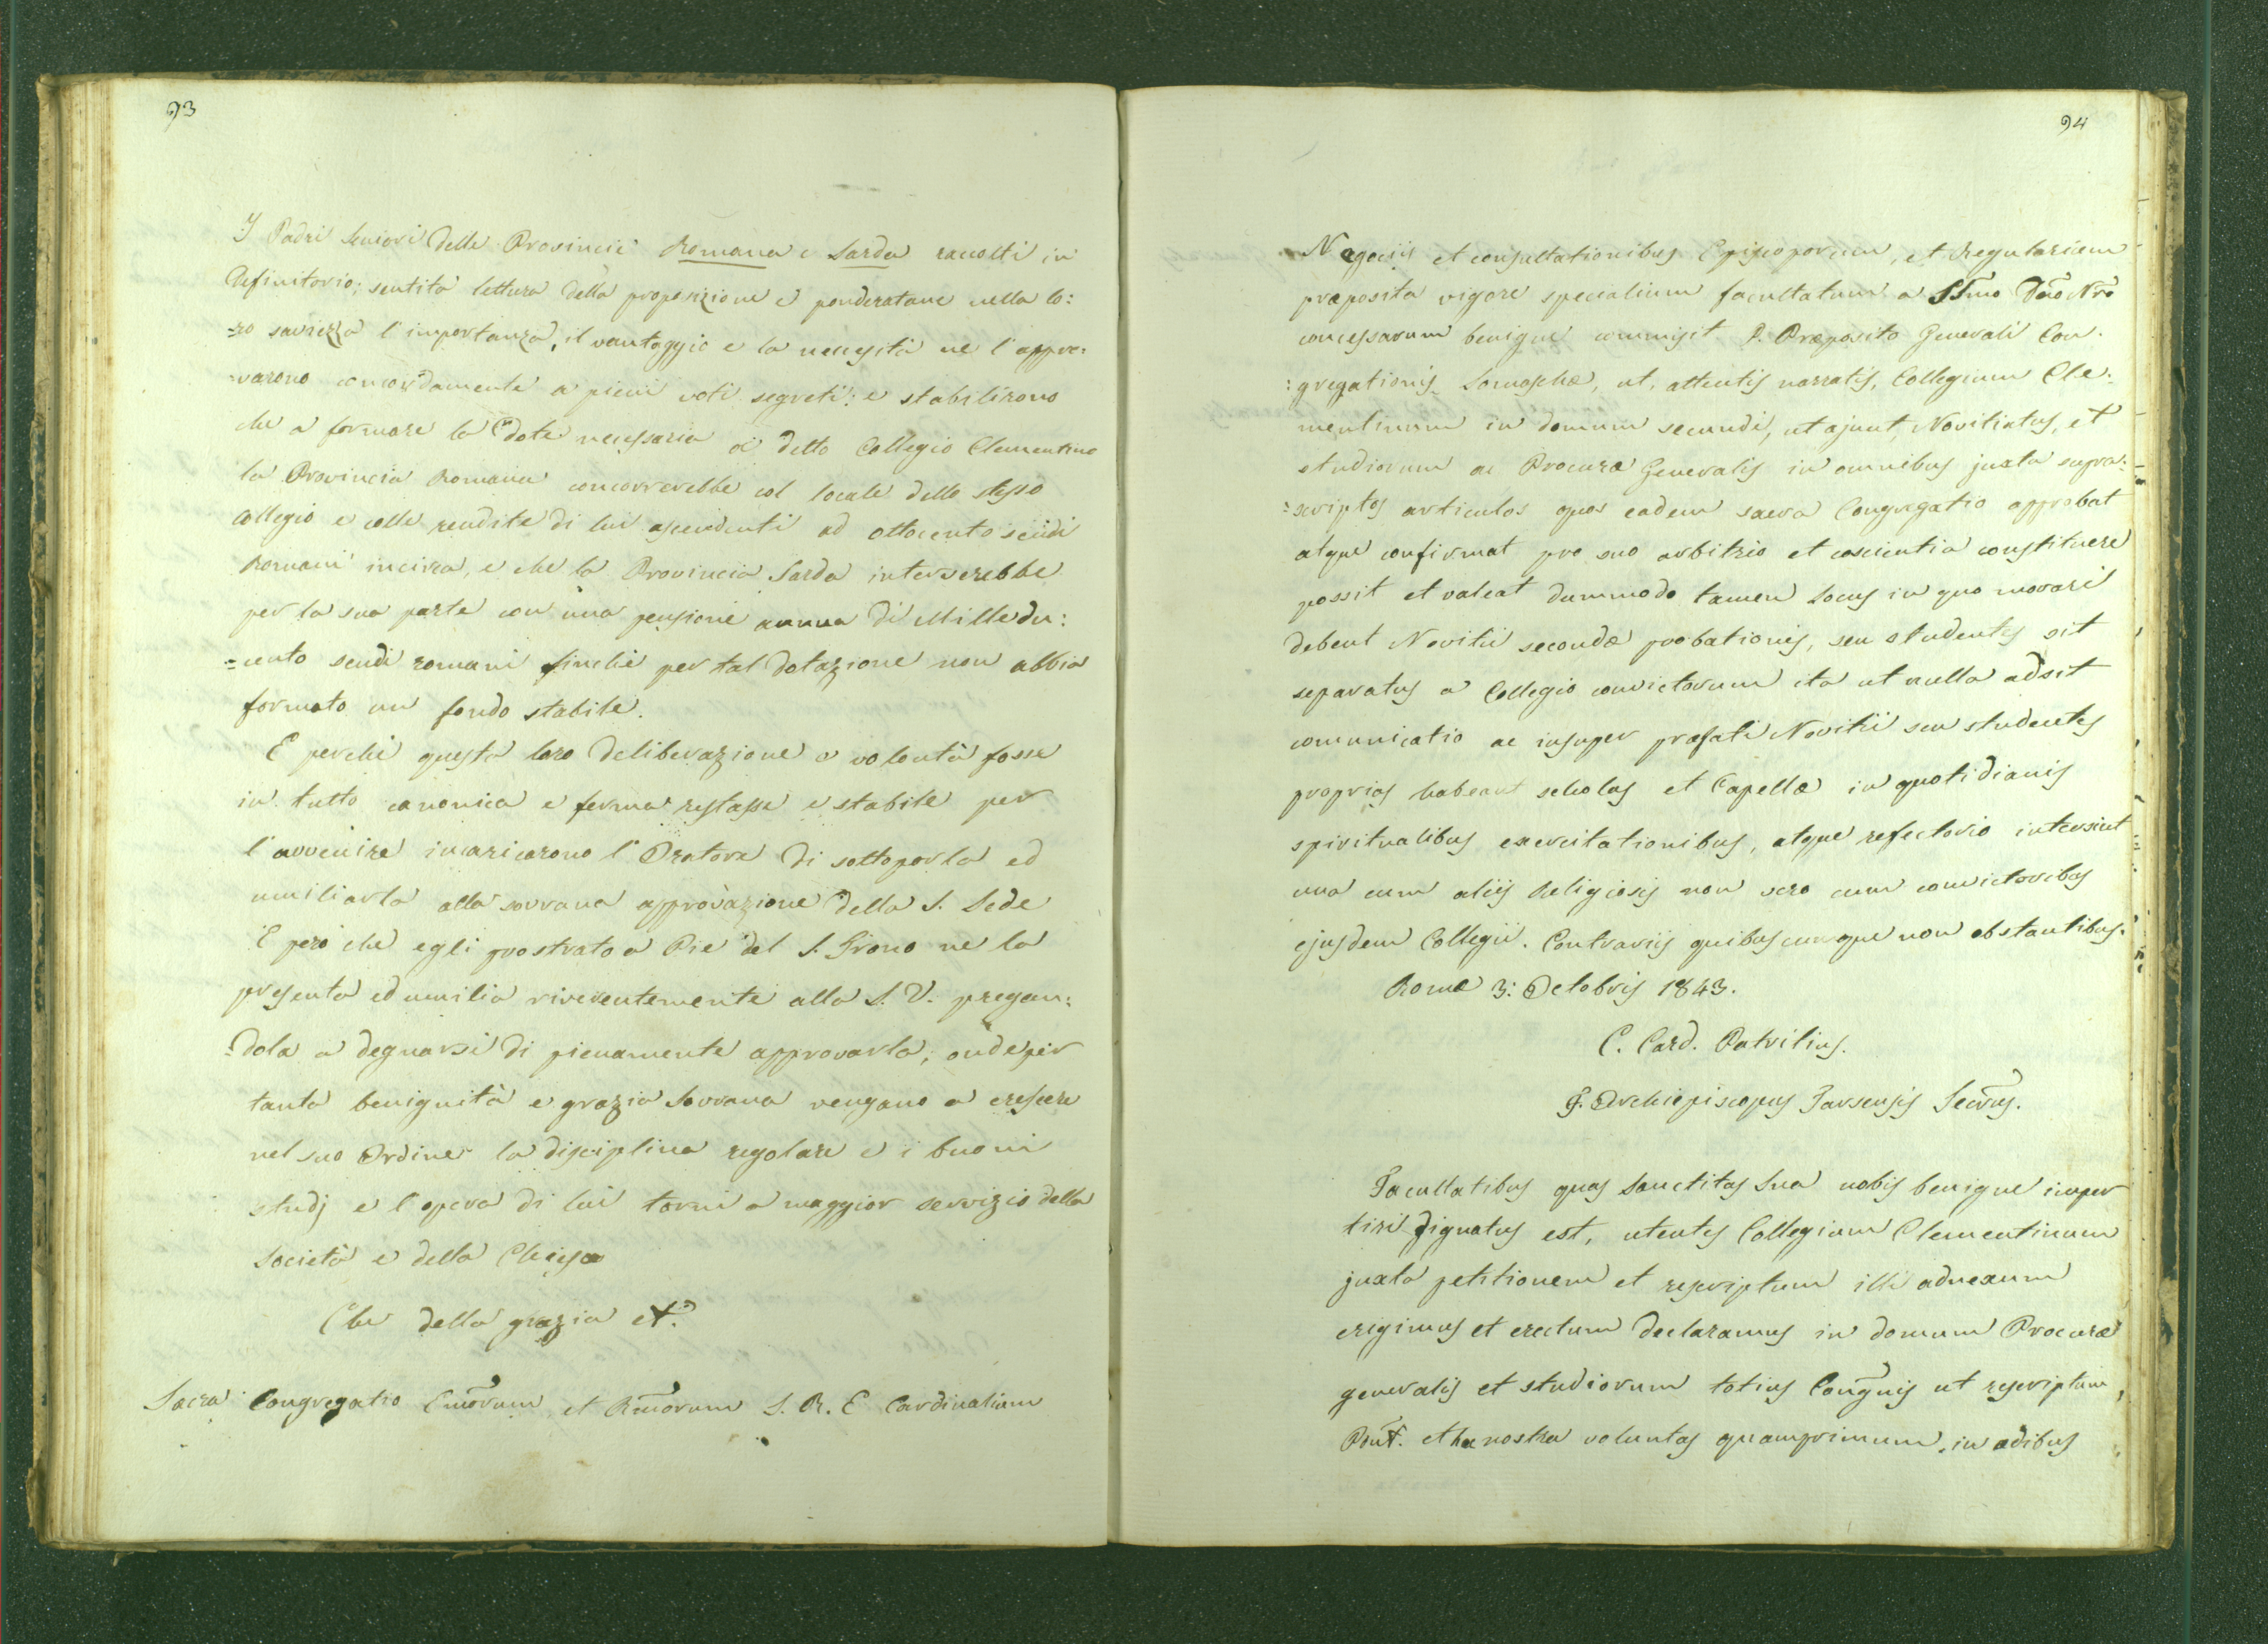 93
I Padri Seniori delle Provincie Romana e Sarda raccolti in
Definitorio; sentita lettura della proposizione e ponderatane nella lo:
=ro saviezza l'importanza, il vantaggio e la necessità ne l'appro:
=varono concordamente a pieni voti segreti: e stabilirono
che a formare la Dote necessaria al detto Collegio Clementino
la Provincia Romana concorrerebbe col locale dello stesso
Collegio e colle rendite di lui ascendenti ad ottocento scudi
Romani incirca, e che la Provincia Sarda interverebbe
per la sua parte con una pensione annua di Mille du:
=cento scudi romani finchè per tal dotazione non abbia
formato un fondo stabile.
E perchè questa loro deliberazione e volontà fosse
in tutto canonica e ferma restasse e stabile per
l'avvenire incaricarono l'Oratore di sottoporla ed
umiliarla alla sovrana approvazione della S. Sede
E però che egli prostrato a Piè del S. Trono ne la
presenta ed umilia riverentemente alla S. V. pregan:
=dola a degnarsi di pienamente approvarla; onde per
tanta benignità e grazia Sovrana vengano a crescere
nel suo Ordine la disciplina regolare e i buoni
studj e l'opera di lui torni a maggior servizio della
Società e della Chiesa
Che della grazia et.
Sacra Congregatio Emorum et Rmorum S. R. E Cardinalium
94
Negociis et consultationibus Episcoporum, et Regularium
præposita vigore specialium facultatum a SSmo Dno Nro
concessarum benigne commisit P. Præposito Generali Con.
:gregationis Somaschæ, ut, attentis narratis, Collegium Cle:
mentinum in domum secundi, ut ajunt, Novitiatus, et
studiorum ac Procuræ Generalis in omnibus juxta supra:
=scriptos articulos quos eadem sacra Congregatio approbat
atque confirmat pro suo arbitrio et coscientia constituere
possit et valeat dummodo tamen Locus in quo morari
debent Novitii secondæ probationis, seu studentes sit
separatus a Collegio convictorum ita ut nulla adsit
comunicatio ac insuper præfati Novitii seu studentes
proprias habeant scholas et Capellæ in quotidianis
spiritualibus exercitationibus, atque refectorio intersint
una cum aliis Religiosis non vero cum convictoribus
ejusdem Collegii. Contrariis quibuscumque non obstantibus.
Romæ 3: Octobris 1843.
C. Card. Patritius.
J. Archiepiscopus Tarsensis Secrus.
Facultatibus quas Sanctitas Sua nobis benigne imper
tiri dignatus est, utentes Collegium Clementinum
juxta petitionem et rescriptum illi adnexum
erigimus et erectum declaramus in domum Procuræ
generalis et studiorum totius Congnis ut rescriptum
Pont. et hæ nostra voluntas quamprimum in ædibus